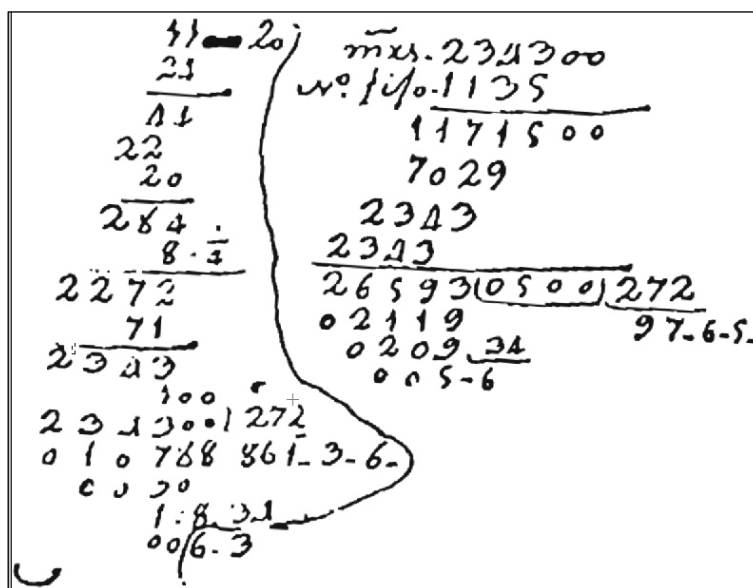 11 — 20
21
41
22
20
284
8 - 1/4
2272
71
2343
100
234300 | 272
0 1 0 768 861-3-6-
0 0 30
1-8 34
00 6-3
mrs. 234300
Nº fijo. 1135
1171500
7029
2343
2343
26593(0500) 272
02119 97-6-5-
0209 34
005-6